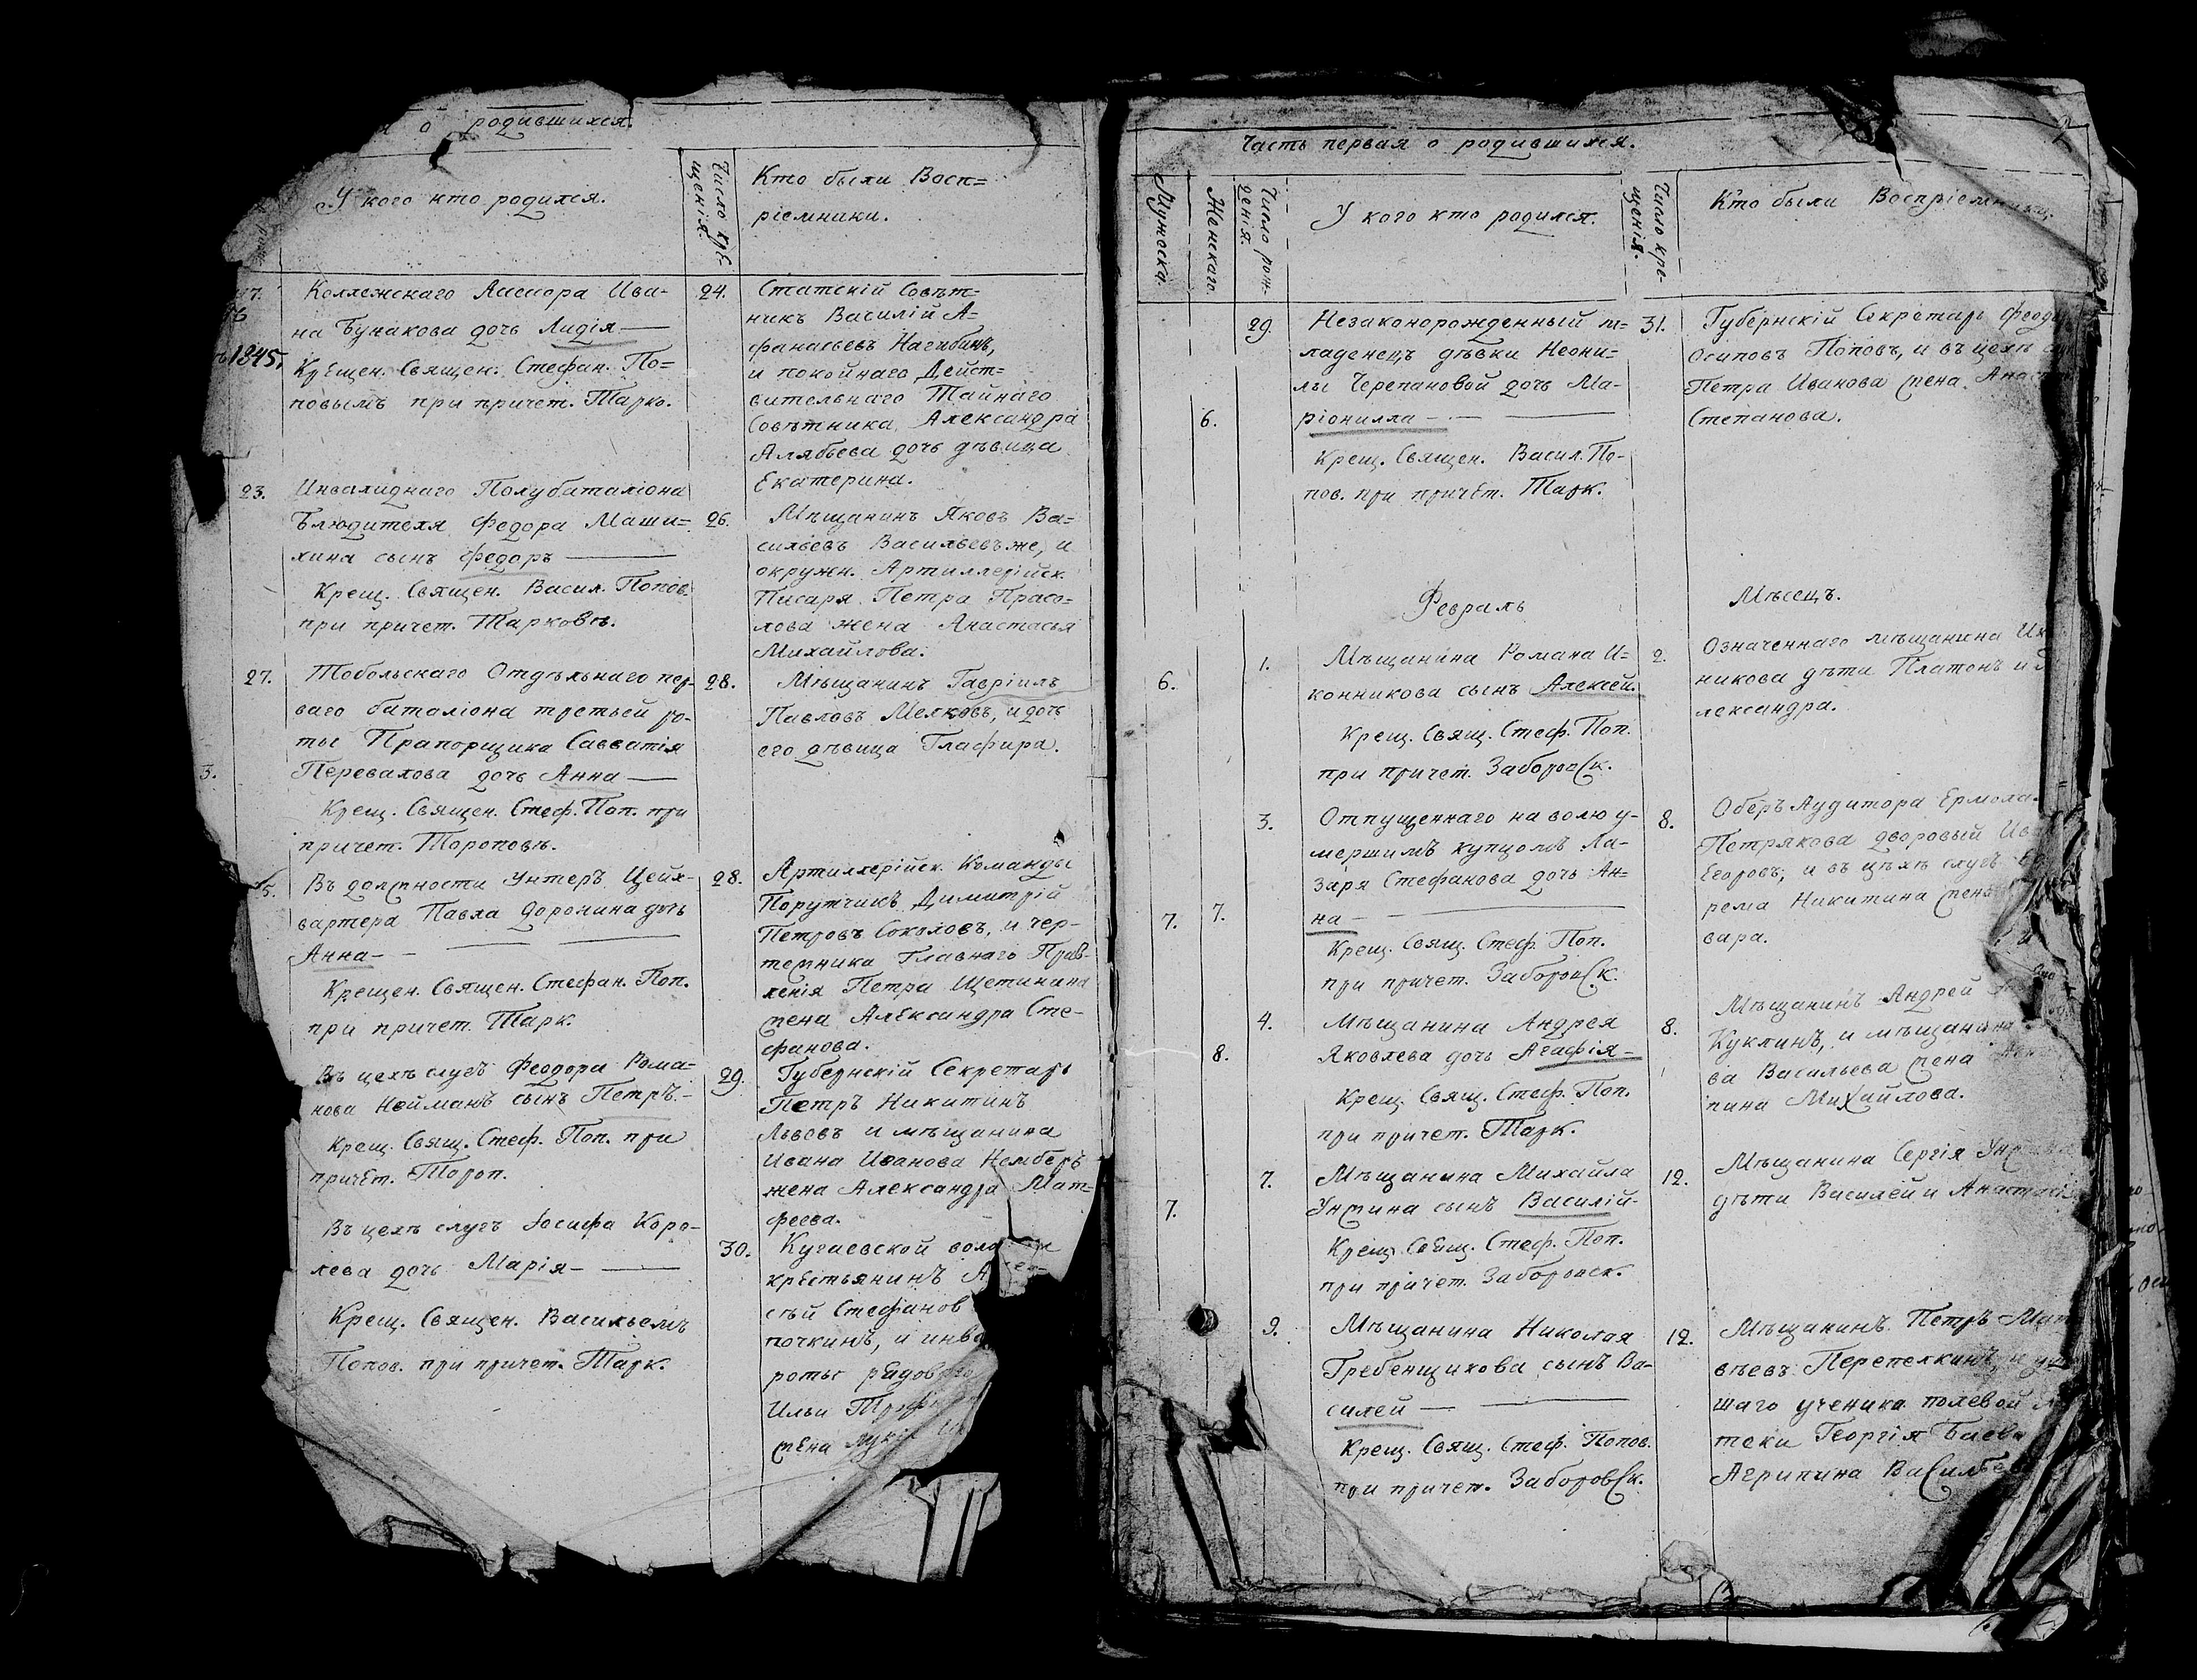 о родившихся.
У кого кто родился.
Число кре-
щенія.
Кто были Восп=
ріемники.
Коллежскаго Ассесора Ива-
на Бунакова дочь Лидія
1845.
Крещен. Священ. Стефан. По=
повымъ при причет. Тарко.
24.
Статскій Совѣт=
никъ Василій А=
фанасьевъ Нагибинъ,
и покойнаго Дейст=
вительнаго Тайнаго
Совѣтника Александра
Алябьева дочь дѣвица
Екатерина.
23.
Инвалиднаго Полубаталіона
Блюдителя Федора Маши=
хина сынъ Федоръ
Крещ. Священ. Васил. Попов.
при причет. Тарковѣ.
26.
Мѣщанинъ Яковъ Ва=
сильевъ Васильевъ же, и
окружн. Артиллерійск.
Писаря Петра Прасо=
лова жена Анастасья
Михайлова.
27.
Тобольскаго Отдѣльнаго пер-
ваго баталіона третьей ро-
ты Прапорщика Савватія
Перевалова дочь Анна
Крещ. Священ. Стеф. Поп. при
причет. Тороповѣ.
3.
28.
Мѣщанинъ Гавріилъ
Павловъ Мелковъ, и дочь
его дѣвица Глафира.
5.
Въ должности Унтеръ Цейх-
вартера Павла Доронина дочь
Анна
Крещен. Священ. Стефан. Поп.
при причет. Тарк.
28.
Артиллерійск. Команды
Порутчикъ Димитрій
Петровъ Соколовъ, и чер-
тежника Главнаго Прав-
ленія Петра Щетинина
жена Александра Сте-
фанова.
Въ цехѣ слугъ Феодора Рома-
нова Нейманъ сынъ Петръ.
Крещ. Свящ. Стеф. Поп. при
причет. Тороп.
29.
Губернскій Секретарь
Петръ Никитинъ
Львовъ и мѣщанина
Ивана Иванова Немберъ
жена Александра Мат-
феева.
Въ цехѣ слугъ Іосифа Коро-
лева дочь Марія
Крещ. Священ. Васильемъ
Попов. при причет. Тарк.
30.
Кугаевской
крестьянинъ
сѣй Стефанов
почкинъ, и инва
роты рядов
Ильи
жена
Часть первая о родившихся.
2
Мужеска.
Женскаго.
Число рож-
денія.
У кого кто родился.
Число кре-
щенія.
Кто были Воспріемники.
29
Незаконорожденный м=
ладенецъ дѣвки Неони-
лы Черепановой дочь Ма-
ріонилла
6.
Крещ. Священ. Васил. По-
пов. при причет. Тарк.
31.
Губернскій Секретарь Феод
Осиповъ Поповъ, и въ цехѣ
Петра Иванова жена
Степанова.
Февраль Мѣсецъ.
6.
1.
Мѣщанина Романа И=
конникова сынъ Алексей.
Крещ. Свящ. Стеф. Поп.
при причет. Заборовск.
2.
Означеннаго мѣщанина Ик
никова дѣти Платонъ и
лександра.
3.
Отпущеннаго на волю у-
мершимъ купцомъ Ла-
заря Стефанова дочь Ан=
на
7. 7.
Крещ. Свящ. Стеф. Поп.
при причет. Заборовск.
8.
Оберъ Аудитора Ермола
Петрякова дворовый Ив
Егоровъ, и въ цѣхѣ слугъ
рема Никитина жена
вара.
4.
Мѣщанина Андрея
8.
Яковлева дочь Агафія
Крещ. Свящ. Стеф. Поп.
при причет. Тарк.
8.
Мѣщанинъ Андрей
Куклинъ, и мѣщанина
ва Васильева жена
пина Михайлова.
7.
7.
Мѣщанина Михайла
Унжина сынъ Василій
Крещ. Свящ. Стеф. Поп.
при причет. Заборовск.
12.
Мѣщанина Сергія
дѣти Василей и Анастасія
9.
Мѣщанина Николая
Гребенщикова сынъ Ва-
силей
Крещ. Свящ. Стеф. Попов.
при причет. Заборовск.
12.
Мѣщанинъ Петръ Мат
вѣевъ Перепелкинъ, и
шаго ученика полевой
теки Георгія
Агрипина Васильева